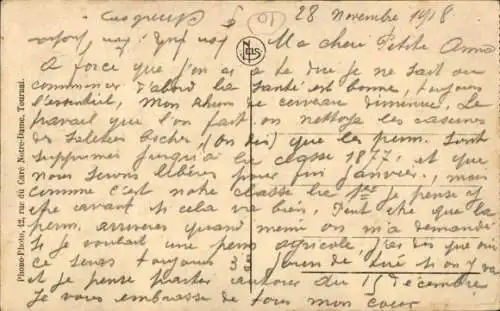 28 Novembre 1918
Ma chère Petite Anna
A force que l'on a à te dire je ne sait ou
commencer d'abord la santé est bonne, toujours
l'essentiel, mon rhume de cerveau diminue. Le
travail que l'on fait on nettoye les casernes
des saletés boches, (on dit) que les perm. sont
supprimés jusqu'à la classe 1877, et que
nous serons libérés pour fin janvier, mais
comme c'est notre classe la 1re je pense y
être avant si cela va bien, Peut être que la
perm. arrivera quand même on m'a demandé
si je voulait une perm agricole, j'ai dis que oui
ce seras toujours 33 jours de tiré si on y va
et je pense partir autour du 15 décembre
Je vous embrasse de tous mon coeur
NELS
Phono-Photo, 12, rue du Curé Notre-Dame, Tournai.